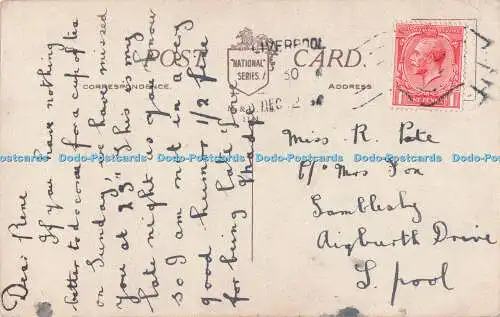 POST CARD.
"NATIONAL"
SERIES.
CORRESPONDENCE.
ADDRESS
LIVERPOOL
30
DEC 2
Dear Rene
If you have nothing
better to do come for a cup of tea
on Sunday, we have missed
You at "23" This is my
late night as you know
so I am not in a very
good humor 1/2 five
for being late Love
Miss R. Pate
c/o Mrs Fox
Lamblesby
Aigburth Drive
L'pool
Dodo-Postcards Dodo-Postcards Dodo-Postcards Dodo-Postcards Dodo-Postcards